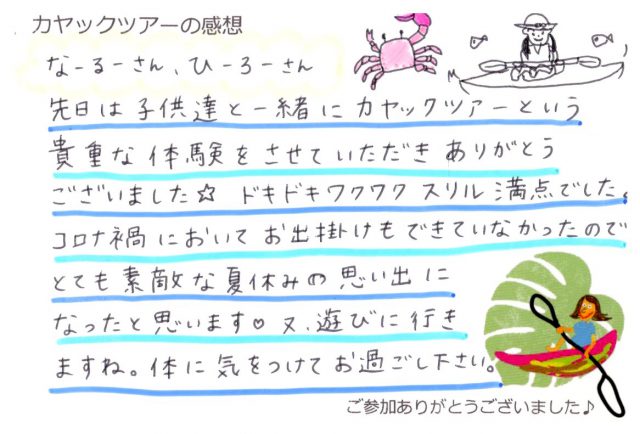 カヤックツアーの感想
なーるーさん、ひーろーさん
先日は子供達と一緒にカヤックツアーという
貴重な体験をさせていただきありがとう
ございました☆ ドキドキワクワク スリル満点でした。
コロナ禍においてお出掛けもできていなかったので
とても素敵な夏休みの思い出に
なったと思います♡ 又、遊びに行き
ますね。体に気をつけてお過ごし下さい。
ご参加ありがとうございました♪